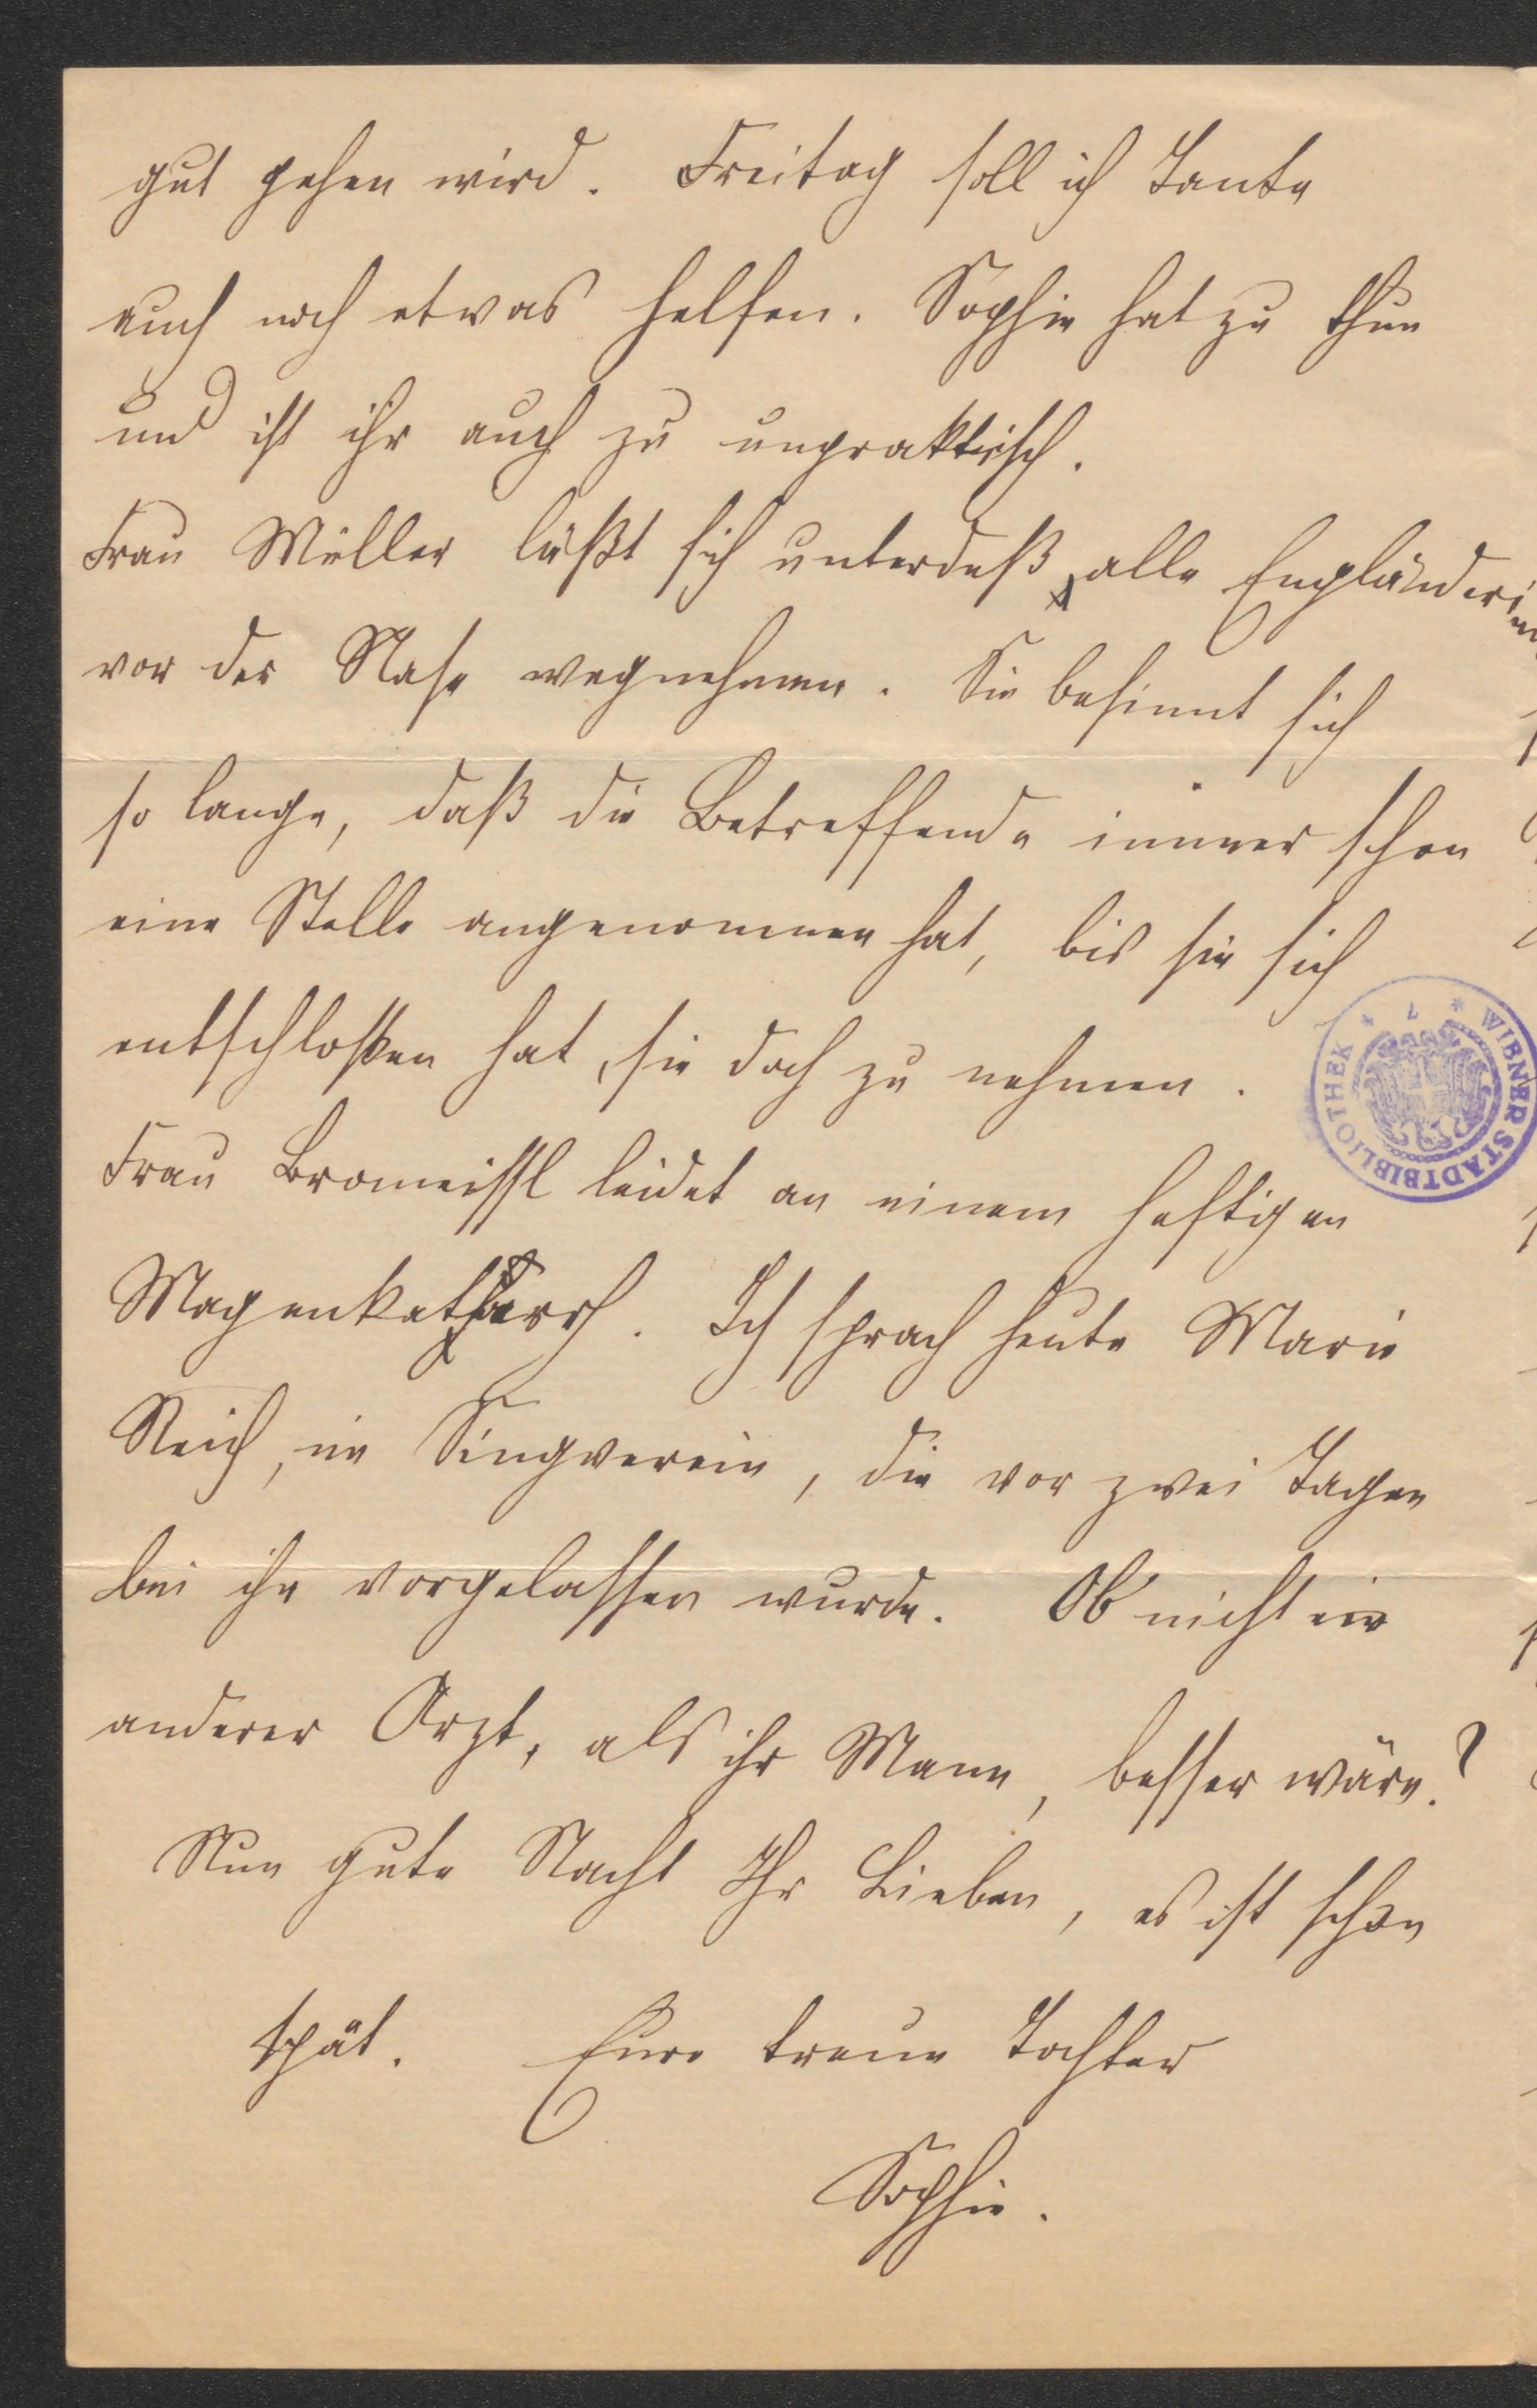 gut gehen wird. Freitag soll ich Tante
auch noch etwas helfen. Sophie hat zu thun
und ist ihr auch zu unpraktisch.
Frau Müller läßt sich unterdeß alle Engländerinen
vor der Nase wegnehmen. Sie besinnt sich
so lange, daß die Betreffende immer schon
eine Stelle angenommen hat, bis sie sich
entschloßen hat, sie doch zu nehmen.
WIENER STADTBIBLIOTHEK
Frau Bromeissl leidet an einem heftigen
Magenkatharrh. Ich sprach heute Marie
Reich, im Singverein, die vor zwei Tagen
bei ihr vorgelassen wurde. Ob nicht ein
anderer Arzt, als ihr Mann, besser wäre?
Nun gute Nacht Ihr Lieben, es ist schon
spät. Eure treue Tochter
Sophie.